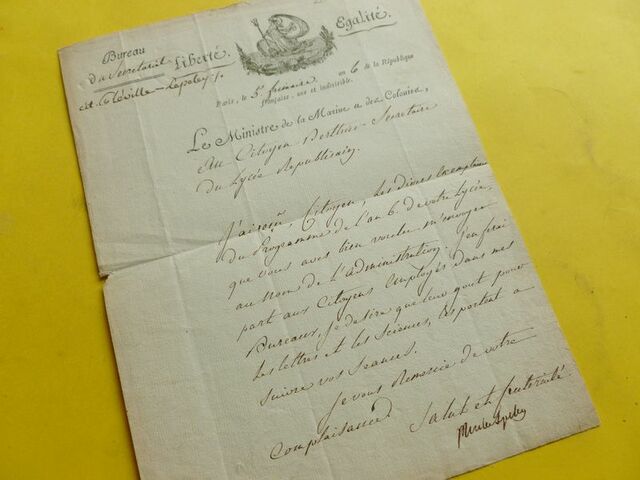 Bureau
du Secretariat
Liberté.
Egalité.
Paris, le 5 frimaire an 6 de la République
française, une et indivisible.
Le Ministre de la Marine et des Colonies,
Au Citoyen Berthier Secrétaire
du Lycée Républicain.
J'ai reçu, Citoyen, les divers exemplaires
du Programme de l'an 6. de votre Lycée,
que vous avez bien voulu m'envoyer
au nom de l'administration. J'en ferai
part aux Citoyens employés dans mes
Bureaux, je desire que leur gout pour
les lettres et les Sciences, les portent a
suivre vos Seances.
Je vous Remercie de votre
Complaisance.
Salut et fraternité.